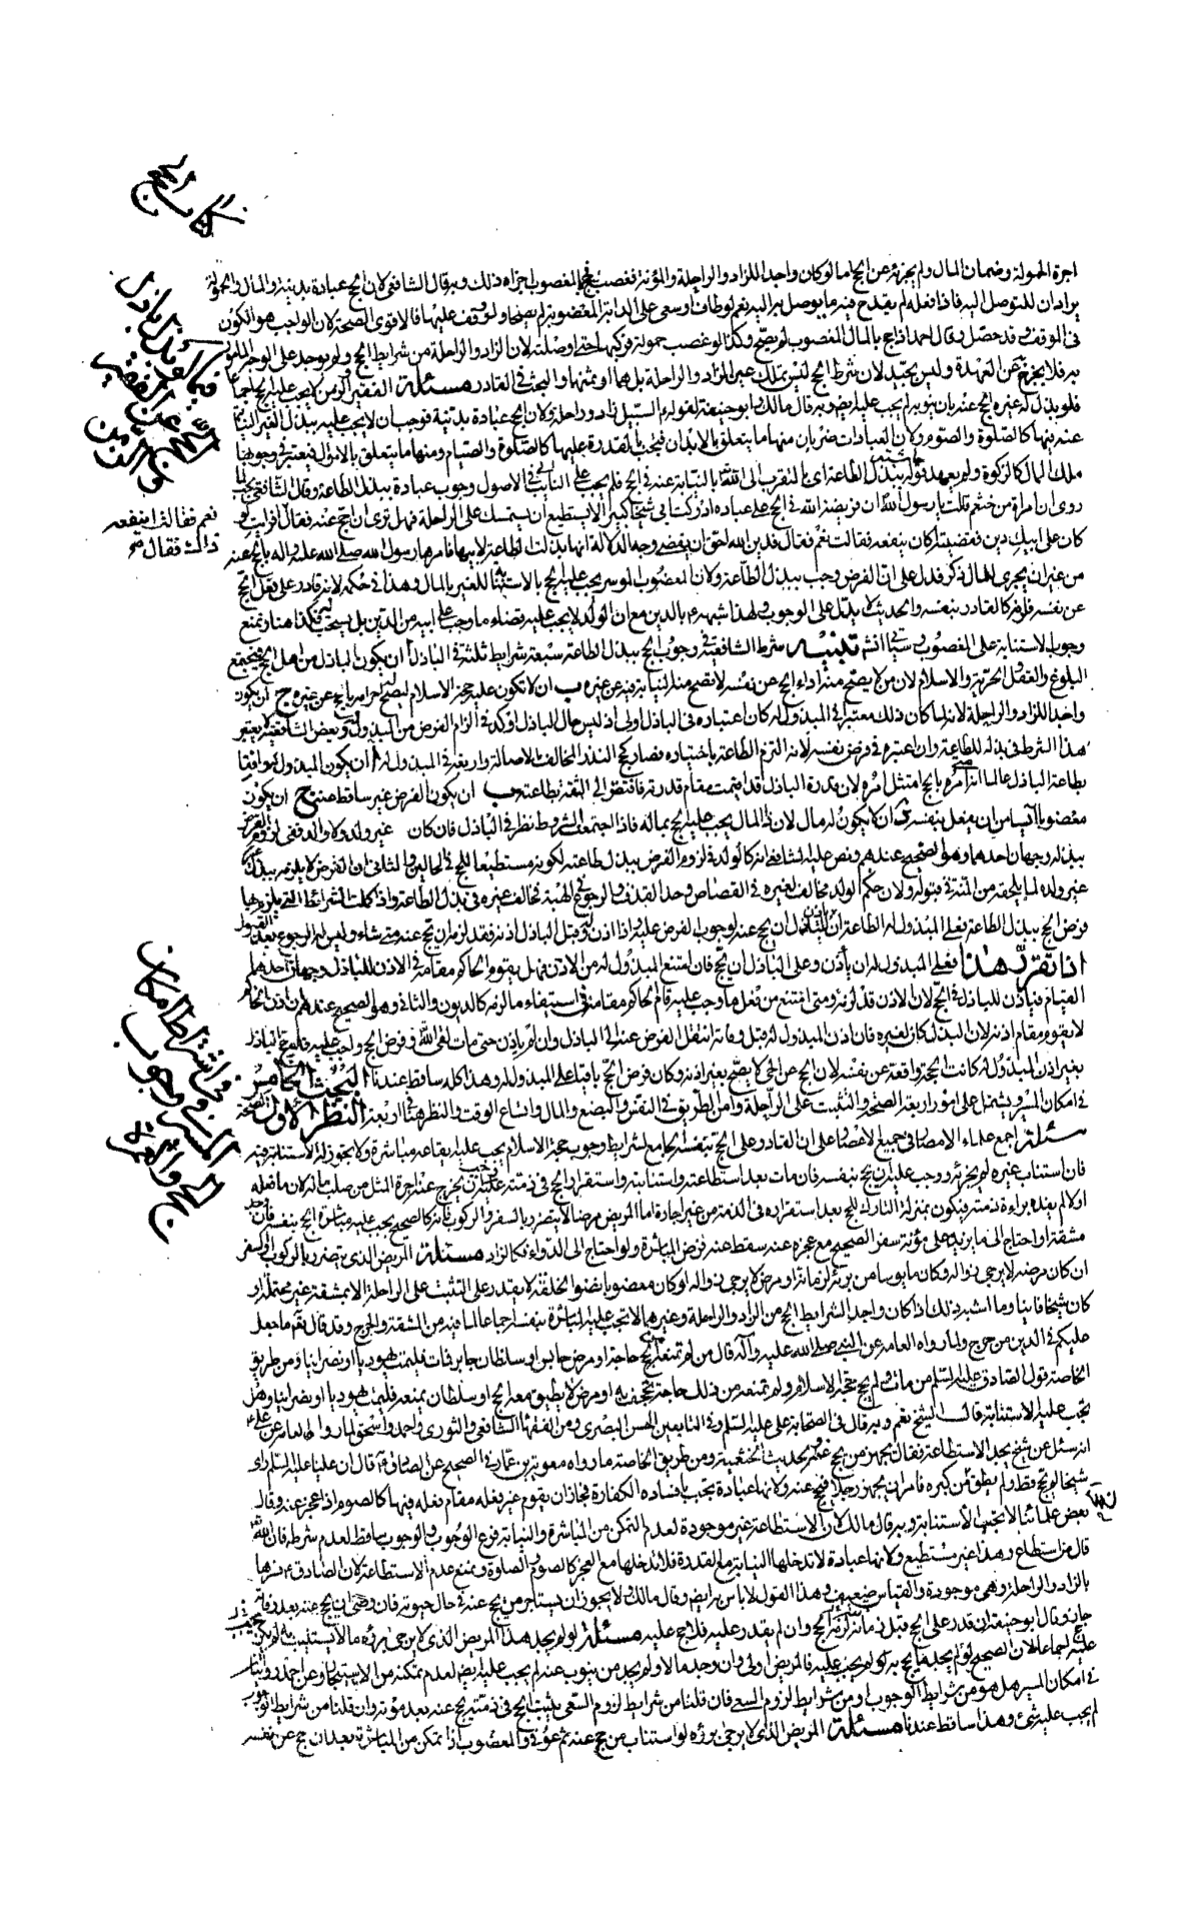 كتاب الحج
اجرة الحمولة وضمان المال ولم يجزئه عن الحج اما لو كان واجدا للزاد والراحلة والمؤنة فغصب فحج بالمغصوب اجزاه ذلك وبه قال الشافعي لان الحج عبادة بدنية والمال والحمولة
يرادان للتوصل اليه فاذا فعله لم يقدح فيه ما يوصل به اليه نعم لو طاف او سعى على الدابة المغصوبة لم يصحا ولو وقف عليها فالاقوى الصحة لان الواجب هو الكون
في الموقف وقد حصل وقال احمد اذا حج بالمال المغصوب لم يصح وكذا لو غصب حمولة فركبها حتى اوصلته لان الزاد والراحلة من شرايط الحج ولم يوجد على الوجه المامور
به فلا يخرج عن العهدة وليس بجيد لان شرط الحج ليس بملك عين الزاد والراحلة بل هما او ثمنهما والبحث في القادر مسئلة الفقير والزمن لا يجب عليه الحج اجماعا
فلو بذل له غيره الحج عنه بان ينوبه لم يجب عليه ايضا وبه قال مالك وابو حنيفة لقوله السبيل زاد وراحلة ولان الحج عبادة بدنية فوجب ان لا يجب عليه ببذل الغير النيابة
عنه فيها كالصلوة والصوم ولان العبادات ضربان منها ما يتعلق بالابدان فيجب بالقدرة عليها كالصلوة والصيام ومنها ما يتعلق بالاموال فيعتبر في وجوبها
ملك المال كالزكوة ولم يعهد في الاصول وجوب عبادة ببذل الطاعة وقال الشافعي يجب لما
روى ان امراة من خثعم قالت يا رسول الله ان فريضة الله في الحج على عباده ادركت ابي شيخا كبيرا لا يستطيع ان يستمسك على الراحلة فهل ترى ان احج عنه فقال
نعم فقالت اينفعه
ذلك فقال نعم
كان على ابيك دين فقضيته اكان ينفعه فقالت نعم فقال فدين الله احق ان يقضى وجه الدلالة انها بذلت الطاعة لابيها فامرها رسول الله صلى الله عليه واله بالحج عنه
من غير ان يجري للمال ذكر فدل على ان الفرض وجب ببذل الطاعة ولان المعضوب الموسر يجب عليه الحج
عن نفسه فلزمه كالقادر بنفسه والحديث لا يدل على الوجوب ولهذا شبهه بالدين مع ان الولد لا يجب عليه قضاء ما وجب على ابيه من الدين بل يستحب فكذا هنا ونمنع
وجوب الاستنابة على المعضوب وسياتي انشه تذنيب شرط الشافعية في وجوب الحج ببذل الطاعة سبعة شرايط ثلثة في الباذل ا ان يكون الباذل من اهل الحج فيجتمع
البلوغ والعقل والحرية والاسلام لان من لا يصح منه اداء الحج عن نفسه لا تصح منه النيابة فيه عن غيره ب ان لا تكون عليه حجة الاسلام ليصح احرامه بالحج عن غيره ج ان يكون
واجدا للزاد والراحلة لانه لما كان ذلك معتبرا في المبذول له كان اعتباره في الباذل اولى اذ ليس حال الباذل اوكد في الزام الفرض من المبذول له وبعض الشافعية لا يعتبر
هذا الشرط في بذله للطاعة وان اعتبره في فرض نفسه لانه التزم الطاعة باختياره فصار كحج النذر المخالف للاصالة واربعة في المبذول له ا ان يكون المبذول له واثقا
بطاعة الباذل عالما انه اذا امره بالحج امتثل امره لان قدرة الباذل قد اقيمت مقام قدرته فافتقر الى الثقة بطاعته ب ان يكون الفرض غير ساقط عنه ج ان يكون
معضوبا آئسا من ان يفعل بنفسه د ان لا يكون له مال لان ذا المال يجب عليه الحج بماله فاذا اجتمعت الشروط نظر في الباذل فان كان غير ولد ولا والد ففي لزوم الفرض
ببذله وجهان احدهما وهو الصحيح عندهم ونص عليه الشافعي انه كالولد في لزوم الفرض ببذل طاعته لكونه مستطيعا للحج في الحالين والثاني ان الفرض لا يلزمه ببذل
غير ولده لما يلحقه من المنة في قبوله ولان حكم الولد مخالف لغيره في القصاص وحد القذف والرجوع في الهبة فخالف غيره في بذل الطاعة واذا كملت الشرائط التي يلزم بها
فرض الحج ببذل الطاعة فعلى المبذول له الطاعة ان ياذن للباذل ان يحج عنه لوجوب الفرض عليه واذا اذن وقبل الباذل اذنه فقد لزمه ان يحج عنه متى شاء وليس له الرجوع بعد القبول
اذا تقرر هذا فعلى المبذول له ان ياذن وعلى الباذل ان يحج فان امتنع المبذول له من الاذن فهل يقوم الحاكم مقامه في الاذن للباذل وجهان احدهما
القيام فياذن للباذل في الحج لان الاذن قد لزمه ومتى امتنع من فعل ما وجب عليه قام الحاكم مقامه في استيفاء ما لزمه كالديون والثاني وهو الصحيح عندهم ان اذن الحاكم
لا يقوم مقام اذنه لان البذل كان لغيره فان اذن المبذول له قبل وفاته انتقل الفرض عنه الى الباذل وان لم ياذن حتى مات لقى الله وفرض الحج واجب عليه فلو حج الباذل
بغير اذن المبذول له كانت الحجة واقعة عن نفسه لان الحج عن الحي لا يصح بغير اذنه وكان فرض الحج باقيا على المبذول له وهذا كله ساقط عندنا البحث الخامس
في امكان المسير ويشتمل على امور اربعة الصحة والتثبت على الراحلة وامن الطريق في النفس والبضع والمال واتساع الوقت والنظر هنا في اربعة النظر الاول الصحة
مسئلة اجمع علماء الامصار في جميع الاعصار على ان القادر على الحج بنفسه الجامع لشرايط وجوب حجة الاسلام يجب عليه ايقاعه مباشرة ولا يجوز له الاستنابة فيه
فان استناب غيره لم يجزئه ووجب عليه ان يحج بنفسه فان مات بعد استطاعته واستنابته واستقرار الحج في ذمته وجب ان يخرج عنه اجرة المثل من صلب ماله لان ما فعله
اولا لم يفده براءة ذمته فيكون بمنزلة التارك للحج بعد استقراره في الذمة من غير اجارة اما المريض مرضا لا يتضرر بالسفر والركوب فانه كالصحيح يجب عليه مباشرة الحج بنفسه فان وجد
مشقة او احتاج الى ما يزيد على مؤنة سفر الصحيح مع عجزه عنه سقط عنه فرض المباشرة ولو احتاج الى الدواء فكالزاد مسئلة المريض الذي يتضرر بالركوب او السفر
ان كان مرضه لا يرجى زواله وكان مايوسا من برئه لزمانة او مرض لا يرجى زواله او كان معضوبا نضو الخلقة لا يقدر على التثبت على الراحلة الا بمشقة غير محتملة او
كان شيخا فانيا وما اشبه ذلك اذا كان واجد الشرايط الحج من الزاد والراحلة وغيرهما لا تجب عليه المباشرة بنفسه اجماعا لما فيه من المشقة والحرج وقد قال تعم ما جعل
عليكم في الدين من حرج ولما رواه العامة عن النبي صلى الله عليه وآله قال من لم تمنعه من الحج حاجة او مرض حابس او سلطان جاير فمات فليمت يهوديا او نصرانيا ومن طريق
الخاصة قول الصادق عليه السلام من مات ولم يحج حجة الاسلام ولم تمنعه من ذلك حاجة تجحف به او مرض لا يطيق معه الحج او سلطان يمنعه فليمت يهوديا او نصرانيا وهل
تجب عليه الاستنابة قال الشيخ نعم وبه قال في الصحابة علي عليه السلم وفي التابعين الحسن البصري ومن الفقهاء الشافعي والثوري واحمد واسحق لما رواه العامة عن علي ع
انه سئل عن شيخ يجد الاستطاعة فقال يجهز من يحج عنه ولحديث الخثعمية ومن طريق الخاصة ما رواه معوية بن عمار في الصحيح عن الصادق ع قال ان عليا عليه السلم راى
شيخا لم يحج قط ولم يطق من كبره فامره ان يجهز رجلا فيحج عنه ولانها عبادة تجب بافسادها الكفارة فجاز ان يقوم غير فعله مقام فعله فيها كالصوم اذا عجز عنه وقال
بعض علمائنا لا تجب الاستنابة وبه قال مالك لان الاستطاعة غير موجودة لعدم التمكن من المباشرة والنيابة فرع الوجوب والوجوب ساقط لعدم شرطه فان الله تعالى
قال من استطاع وهذا غير مستطيع ولانها عبادة لا تدخلها النيابة مع القدرة فلا تدخلها مع العجز كالصوم والصلوة ونمنع عدم الاستطاعة لان الصادق ع فسرها
بالزاد والراحلة وهي موجودة والقياس ضعيف وهذا القول لا باس به ايضا وقال مالك ولا يجوز ان يستاجر من يحج عنه في حال حيوته فان وصى ان يحج عنه بعد وفاته
جاز وقال ابو حنيفة ان قدر على الحج قبل زمانته لزمه الحج وان لم يقدر عليه فلا حج عليه مسئلة لو لم يجد هذا المريض الذي لا يرجى برؤه ما لا يستنيب به لم يكن
عليه اجماعا لان الصحيح لو لم يجد ما يحج به لم يجب عليه فالمريض اولى وان وجد مالا ولم يجد من ينوب عنه لم يجب عليه ايضا لعدم تمكنه من الاستيجار وعن احمد روايتان
في امكان المسير هل هو من شرايط الوجوب او من شرايط لزوم السعي فان قلنا من شرايط لزوم السعي يثبت الحج في ذمته يحج عنه بعد موته وان قلنا من شرايط الوجوب
لم يجب عليه شئ وهذا ساقط عندنا مسئلة المريض الذي لا يرجى برؤه لو استناب من يحج عنه ثم عوفي والمعضوب اذا تمكن من المباشرة بعد ان حج عن نفسه